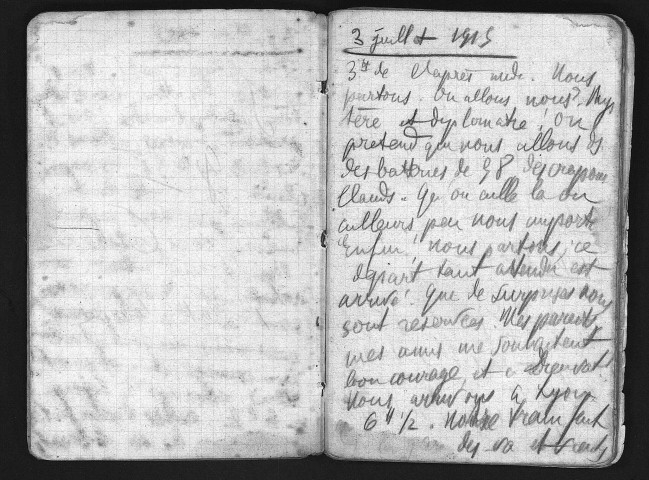 3 juillet 1915
3h de l'après midi. Nous
partons. Où allons nous? Mys
tère et diplomatie! On
prétend que nous allons
des batteries de 58 des crapouil
lauds. Qu on aille là ou
ailleurs peu nous importe
Enfin! nous partons, ce
départ tant attendu est
arrivé. Que de surprises nous
sont réservées. Mes parents
mes amis me souhaitent
bon courage, et
Nous arrivons à Lyon
6h 1/2. Notre train fait
des va et vients